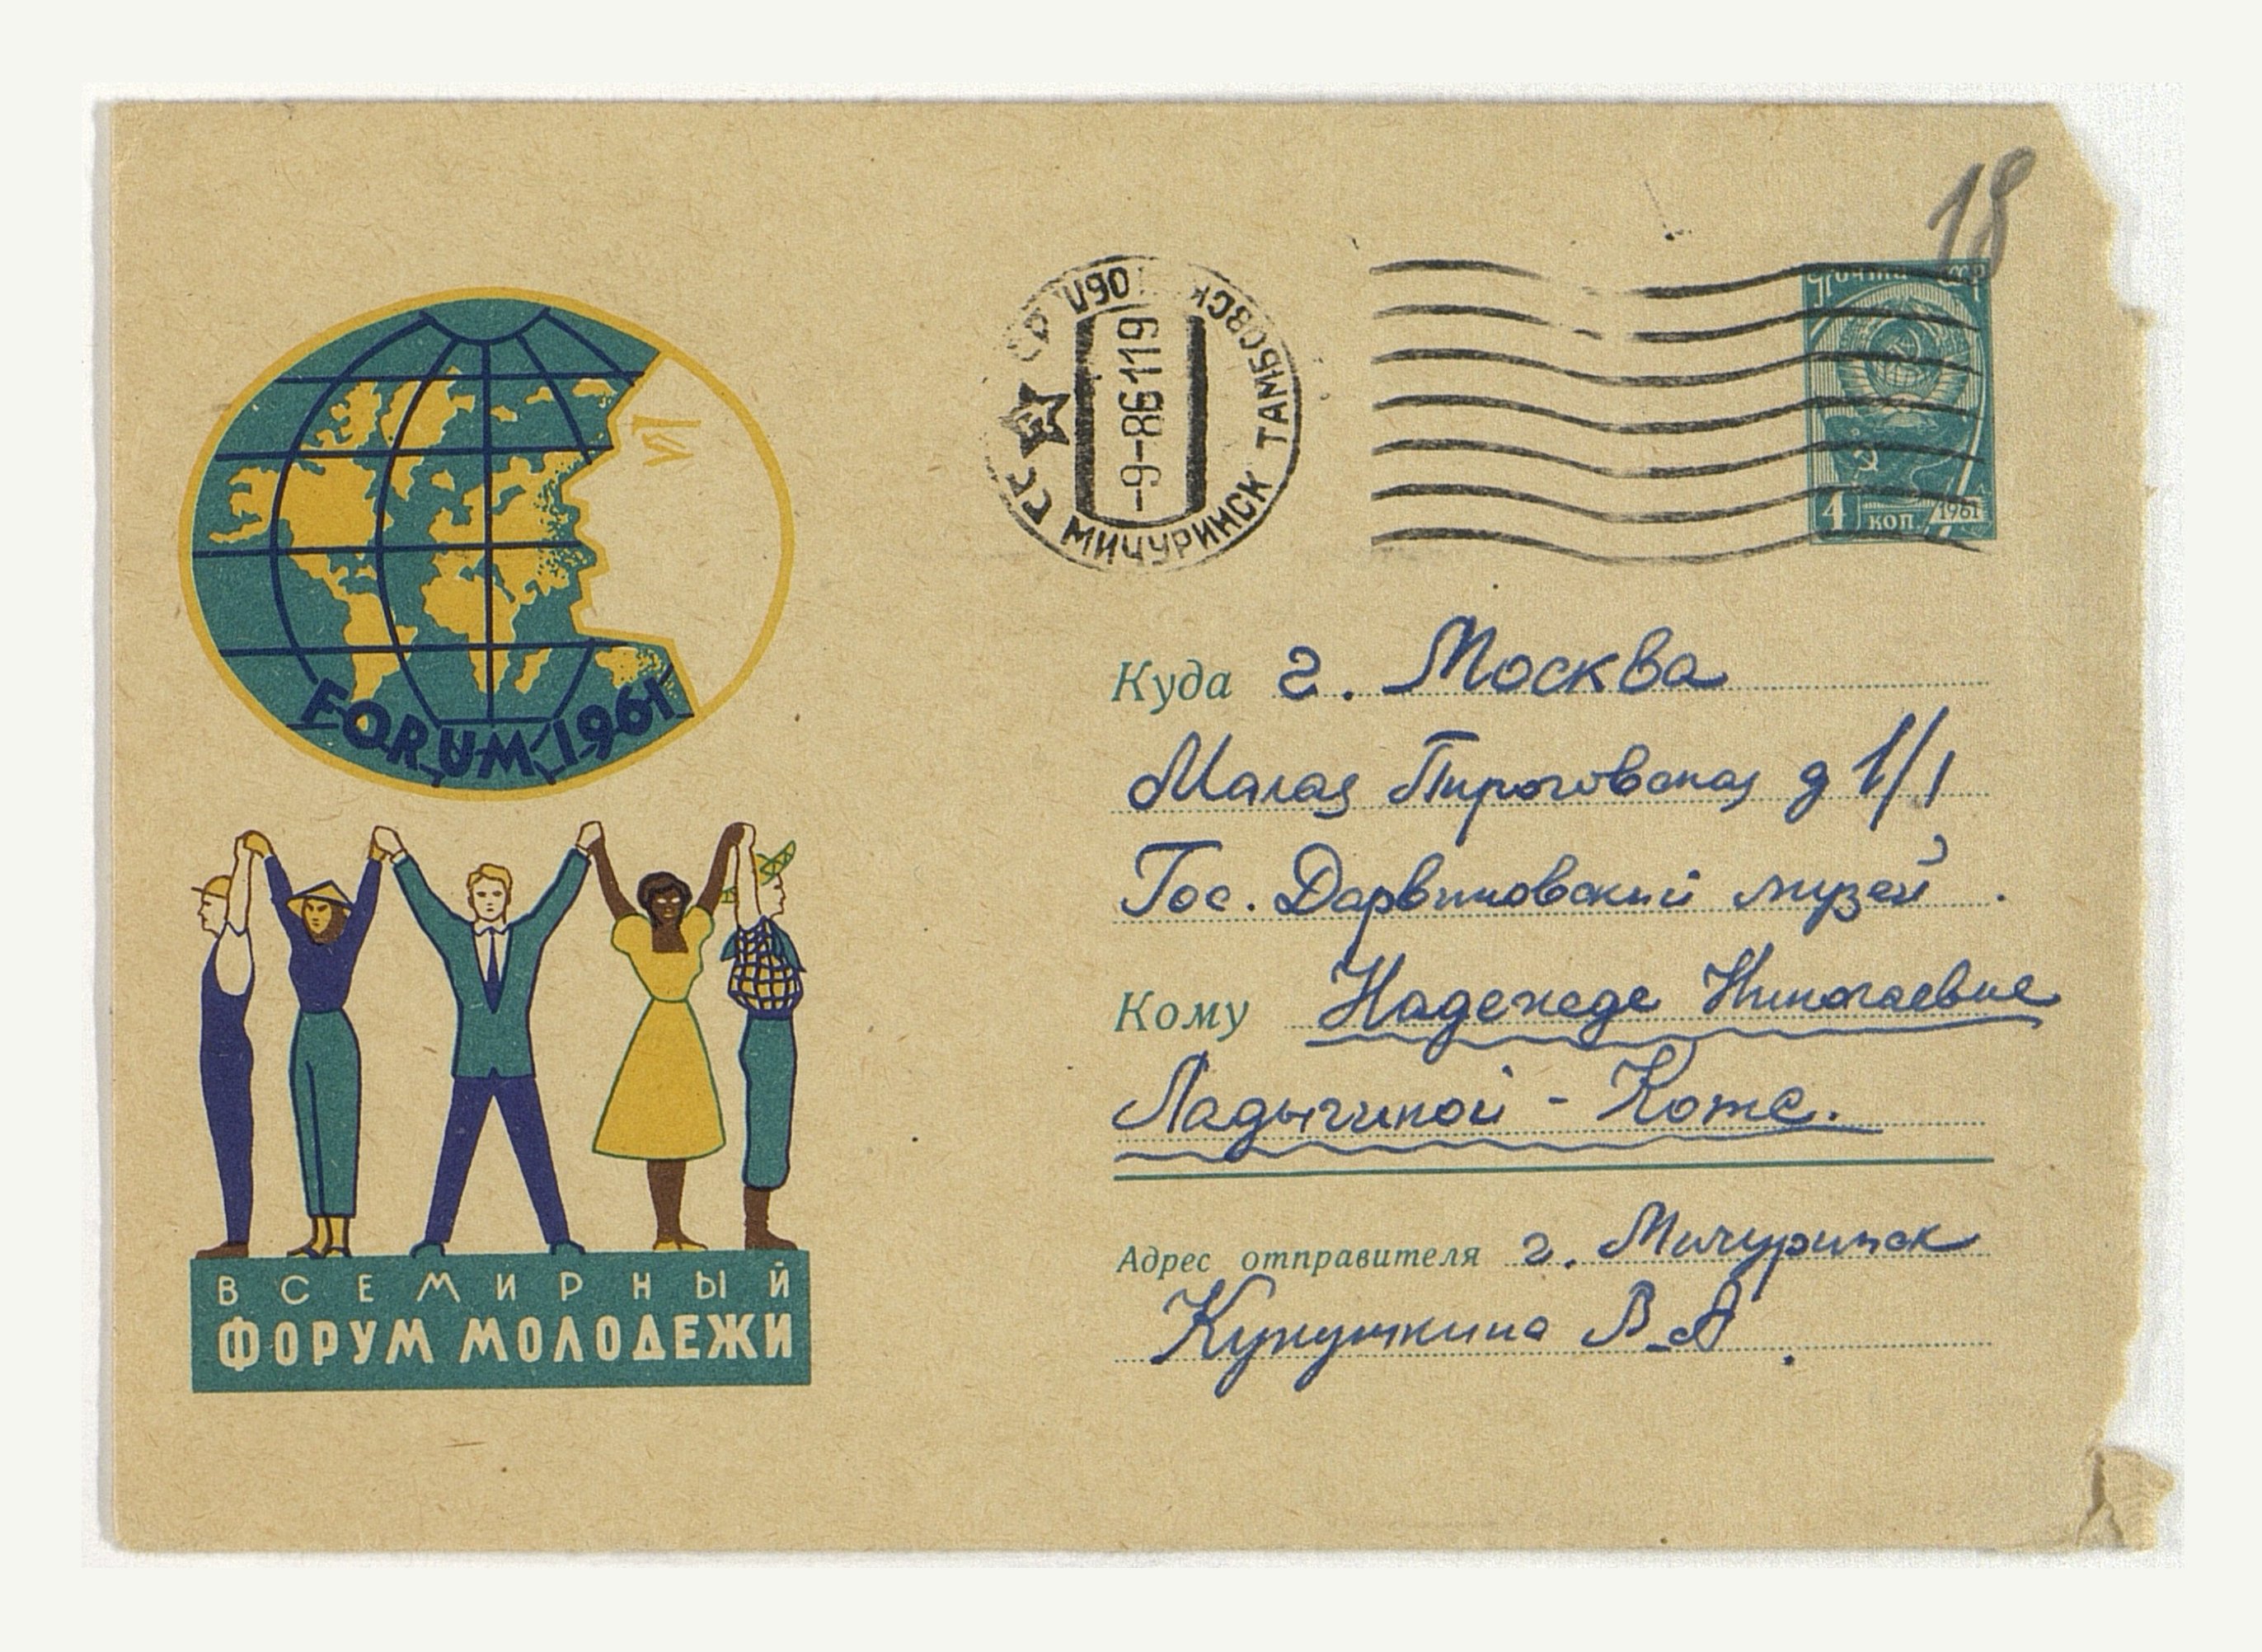 18
ПОЧТА СССР
4 КОП. 1961
МИЧУРИНСК ТАМБОВСК
-9-86119
FORUM 1961
ВСЕМИРНЫЙ
ФОРУМ МОЛОДЕЖИ
Куда г. Москва
Малая Пироговская д 1/1
Гос. Дарвиновский музей.
Кому Надежде Николаевне
Ладыгиной - Котс.
Адрес отправителя г. Мичуринск
Кукушкина В А.